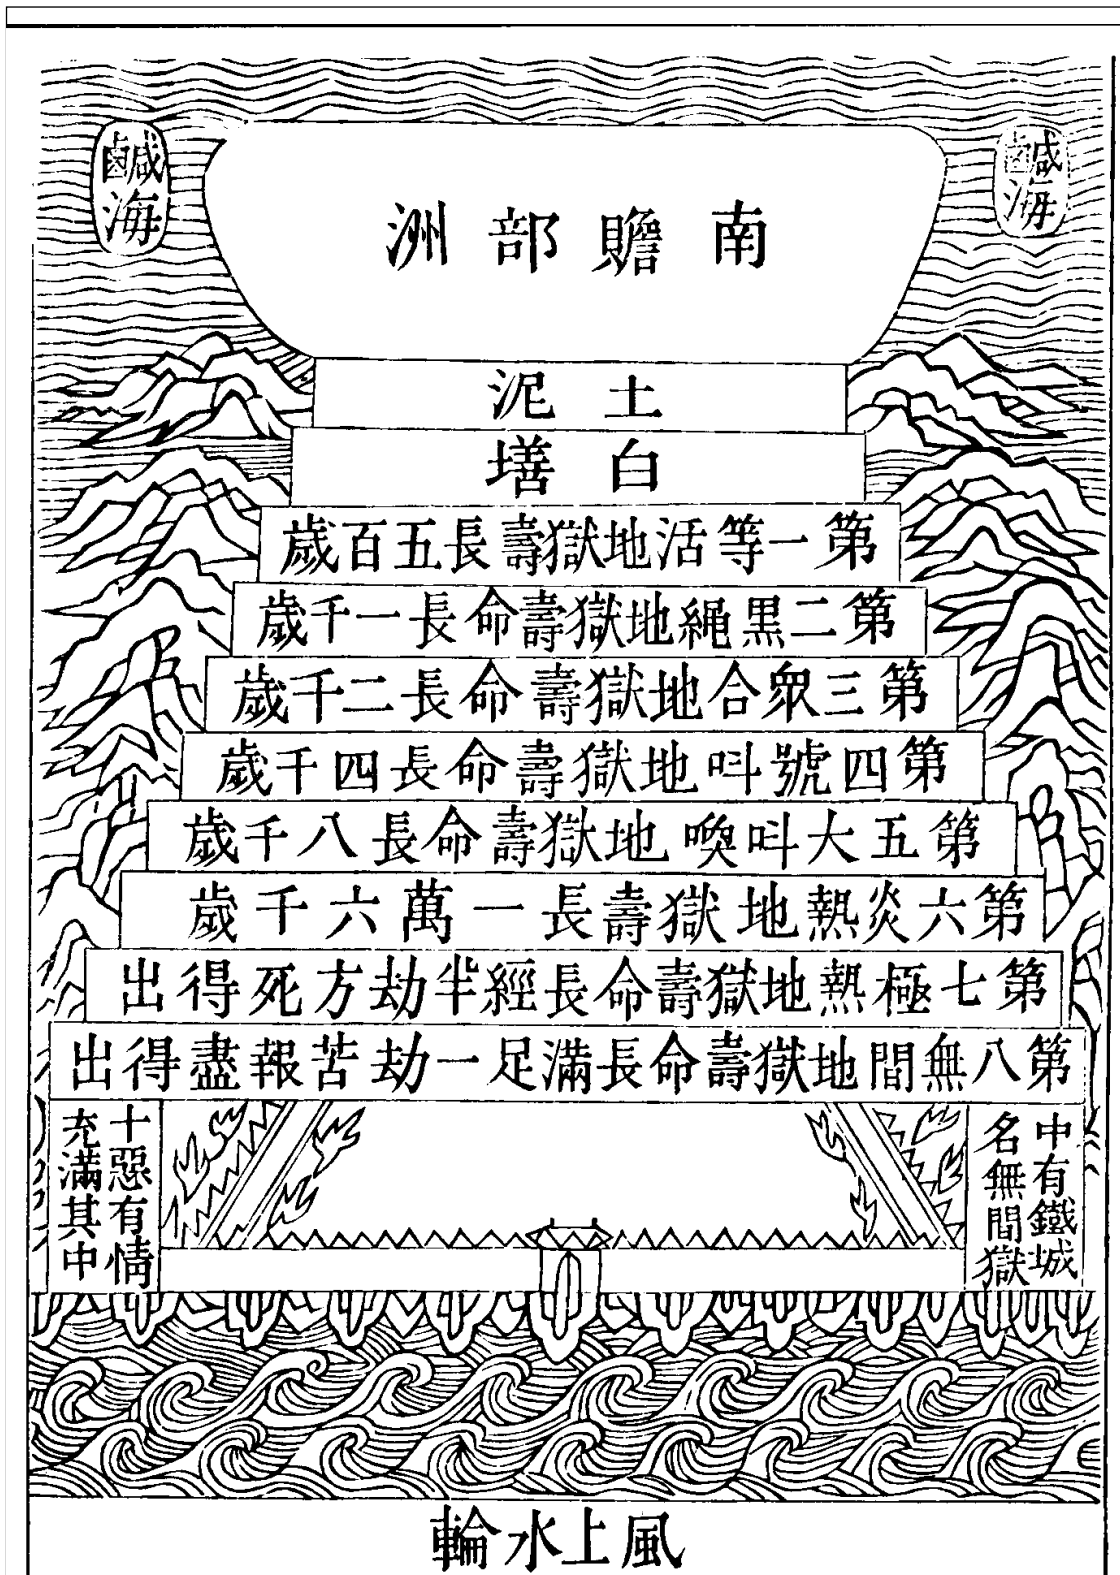 鹹海
鹹海
南贍部洲
土泥
白墡
第一等活地獄壽長五百歲
第二黑繩地獄壽命長一千歲
第三眾合地獄壽命長二千歲
第四號呌地獄壽命長四千歲
第五大呌喚地獄壽命長八千歲
第六炎熱地獄壽長一萬六千歲
第七極熱地獄壽命長經半劫方死得出
第八無間地獄壽命長滿足一劫苦報盡得出
中有鐵城
名無間獄
十惡有情
充滿其中
風上水輪